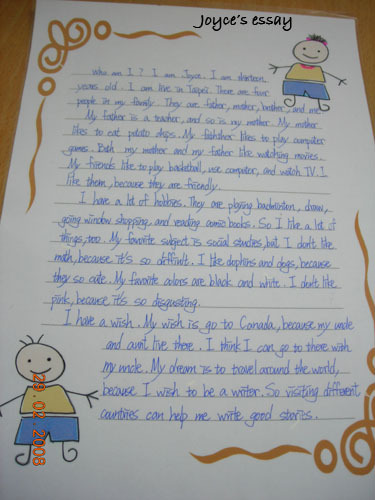 Joyce's essay
Who am I ? I am Joyce. I am thirteen
years old. I am live in Taipei. There are four
people in my family. They are father, mother, brother, and me.
My father is a teacher, and so is my mother. My mother
likes to eat potato chips. My father likes to play computer
games. Both my mother and my father like watching movies.
My friends like to play basketball, use computer, and watch TV. I
like them, because they are friendly.
I have a lot of hobbies. They are playing badminton, draw,
going window shopping, and reading comic books. So I like a lot of
things, too. My favorite subject is social studies, but I don't like
math, because it's so difficult. I like dolphins and dogs, because
they so cute. My favorite colors are black and white. I don't like
pink, because it's so disgusting.
I have a wish. My wish is go to Canada, because my uncle
and aunt live there. I think I can go to there with
my uncle. My dream is to travel around the world,
because I wish to be a writer. So visiting different
countries can help me write good stories.
29.02.2008